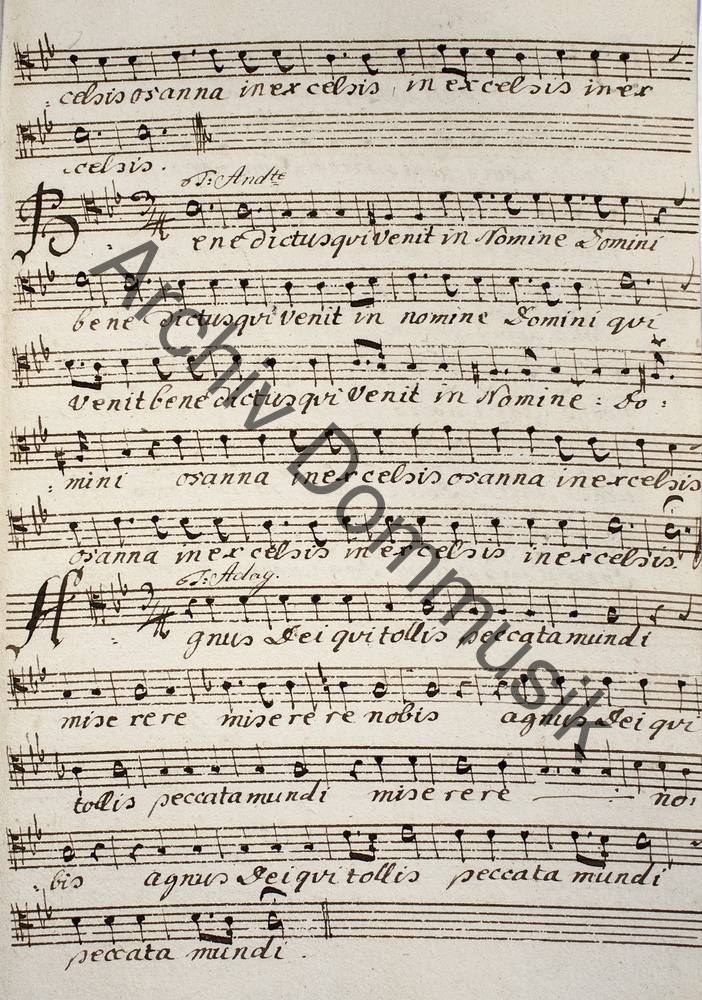 celsis osanna in ex celsis in ex celsis in ex
celsis.
T: Andte
Benedictus qui venit in Nomine Domini
bene dictus qui venit in nomine Domini qui
venit bene dictus qui venit in Nomine : Do :
: mini osanna in ex celsis osanna in excelsis
osanna in ex celsis in ex celsis in excelsis.
T: Adag.
Agnus Dei qui tollis peccata mundi
mise re re mise re re nobis agnus Dei qui
tollis peccata mundi mise re re no:
: bis agnus Dei qui tollis peccata mundi
peccata mundi .
Archiv Dommusik